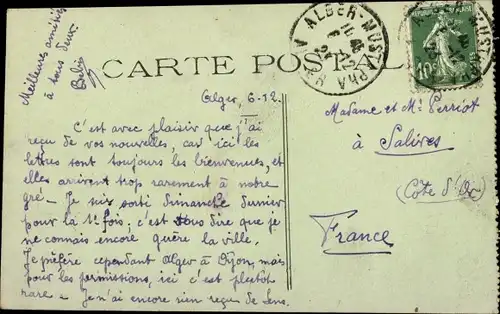 Meilleures amitiés
à tous deux.
CARTE POSTALE
ALGER-MUSTAPHA
10c
Alger, 6-12
C'est avec plaisir que j'ai
reçu de vos nouvelles, car ici les
lettres sont toujours les bienvenues, et
elles arrivent trop rarement à notre
gré - Je suis sorti Dimanche dernier
pour la 1e fois; c'est vous dire que je
ne connais encore guère la ville.
Je préfère cependant Alger à Dijon, mais
pour les permissions, ici c'est plutôt
rare - Je n'ai encore rien reçu de Lens.
Madame et Mr Perriot
à Salives
(Côte d'Or)
France